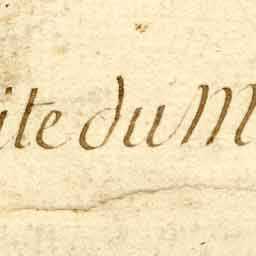 ite du M